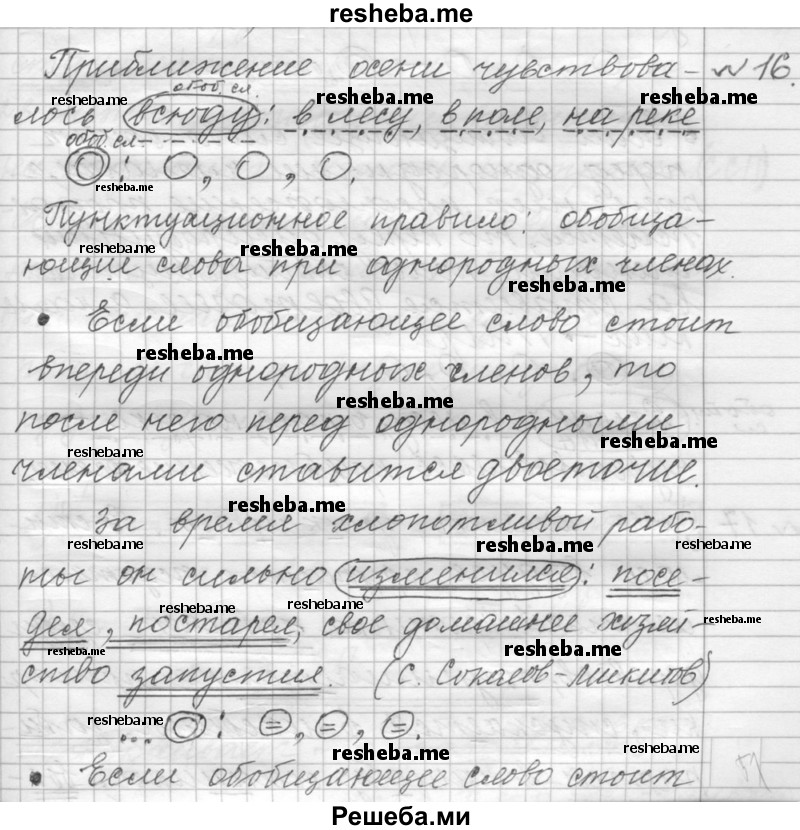 resheba.me
Приближение осени чувствова- №16.
обоб. сл.
лось всюду: в лесу, в поле, на реке
обоб. сл.
O: O, O, O.
Пунктуационное правило: обобща-
ющие слова при однородных членах.
• Если обобщающее слово стоит
впереди однородных членов, то
после него перед однородными
членами ставится двоеточие.
За время хлопотливой рабо-
ты он сильно изменился: посе-
дел, постарел, свое домашнее хозяй-
ство запустил. (С. Соколов-Микитов)
... O: =, =, =.
• Если обобщающее слово стоит
Решеба.ми